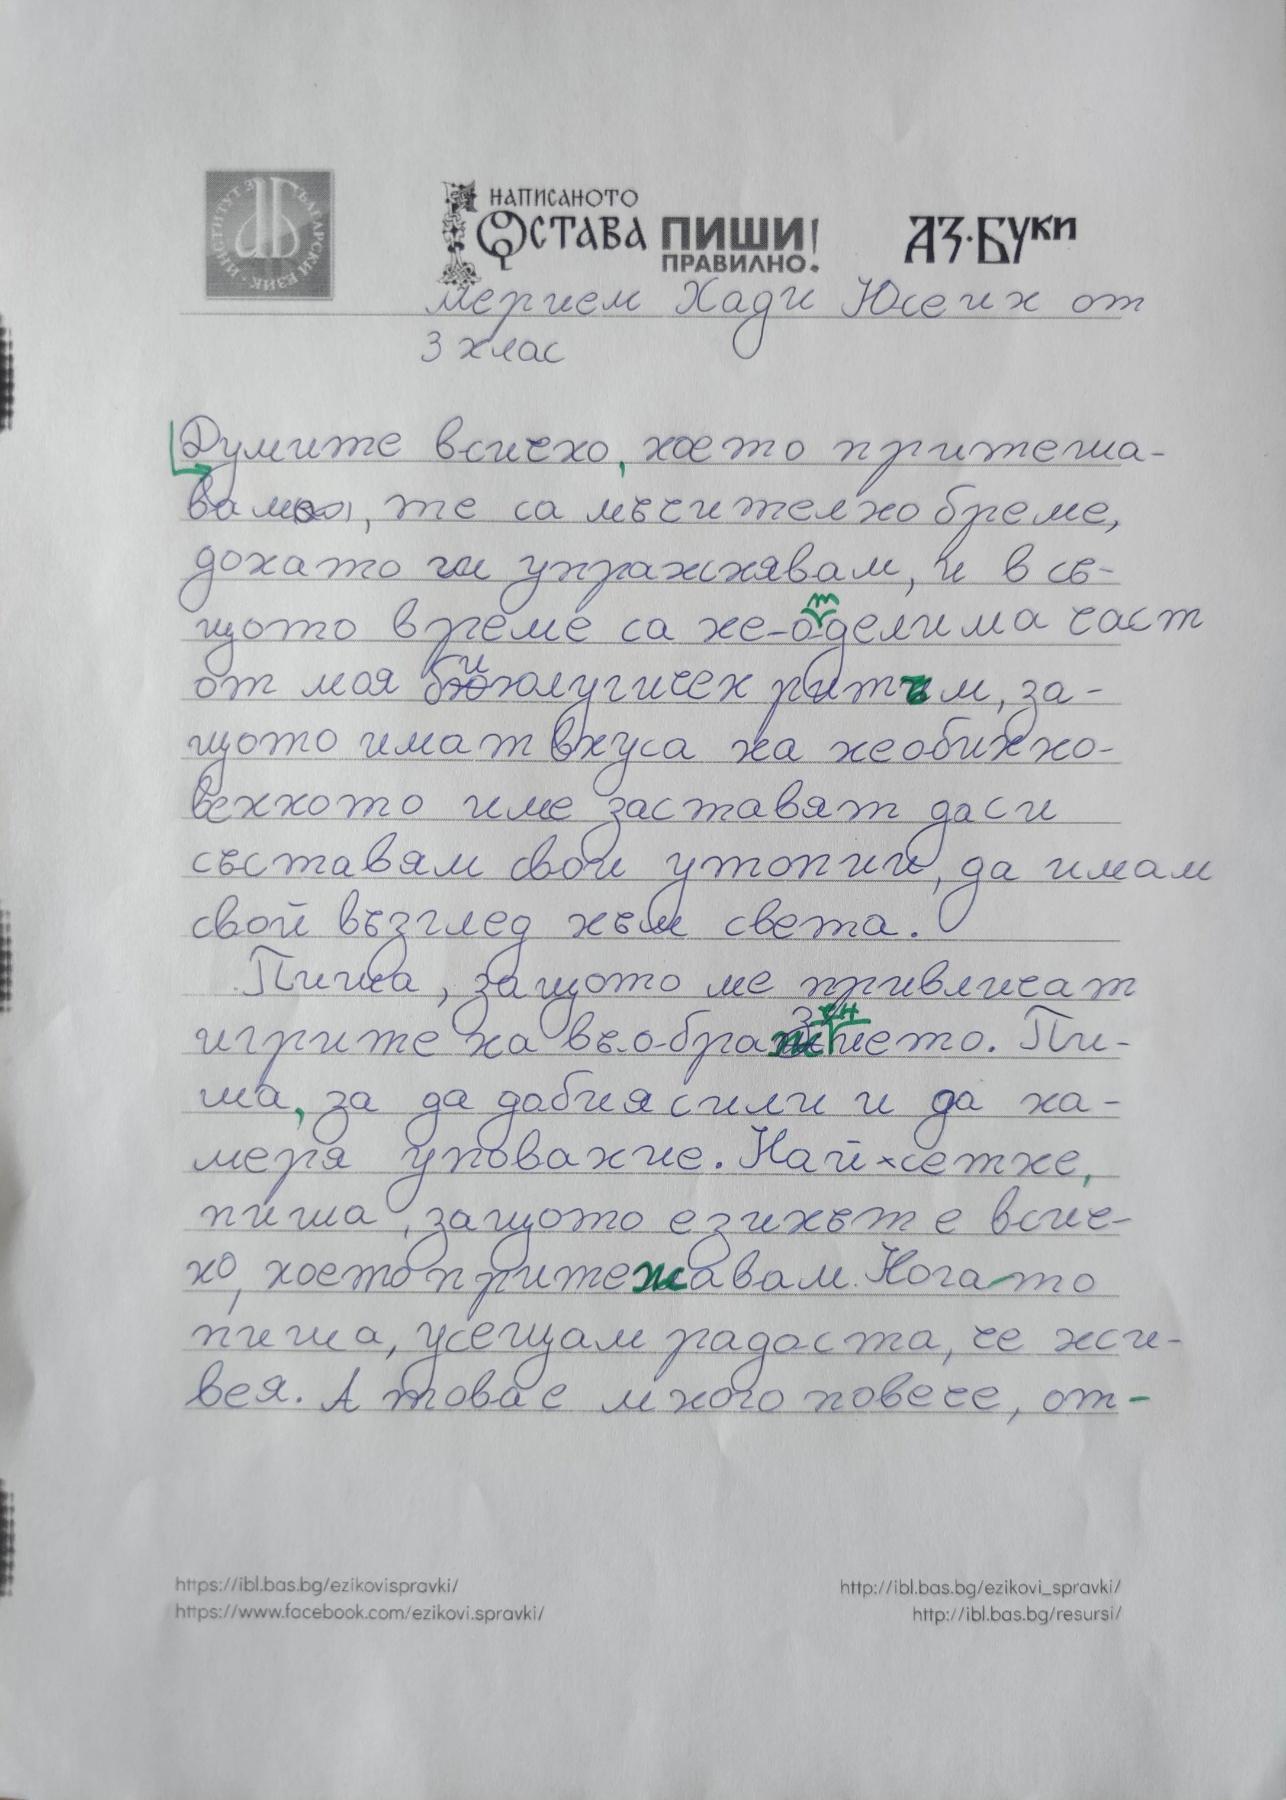 ИНСТИТУТ ЗА БЪЛГАРСКИ ЕЗИК
НАПИСАНОТО
ОСТАВА ПИШИ
ПРАВИЛНО!
АЗ·БУКИ
Мерием Хади Юсеин от
3 клас
Думите всичко, което притежа-
вам, те са мъчително бреме,
докато ги упражнявам, и в съ-
щото време са не-отделима част
от моя биологичен ритъм, за-
щото имат вкуса на необикно-
венното име заставят даси
съставям свои утопии, да имам
свой възглед към света.
Пиша, защото ме привличат
игрите на въ-о-бражението. Пи-
ша, за да добия сили и да на-
меря упование. Най-сетне,
пиша, защото езикът е всич-
ко, което притежавам. Когато
пиша, усещам радоста, че жи-
вея. А това е много повече, от-
https://ibl.bas.bg/ezikovispravki/
https://www.facebook.com/ezikovi.spravki/
http://ibl.bas.bg/ezikovi_spravki/
http://ibl.bas.bg/resursi/